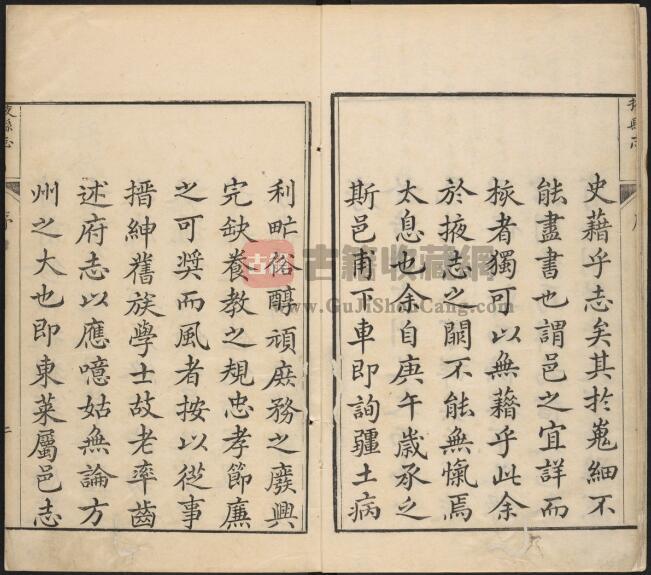 史藉乎志矣其於嵬細不
能盡書也謂邑之宜詳而
核者獨可以無藉乎此余
於掖志之闕不能無愾焉
太息也余自庚午歲承之
斯邑甫下車即詢疆土病
利甿俗醇頑庶務之廢興
完缺養教之規忠孝節廉
之可奨而風者按以從事
搢紳舊族學士故老率齒
述府志以應噫姑無論方
州之大也即東萊屬邑志
掖縣志
序
二
古籍
古籍收藏網
www.GuJiShouCang.com